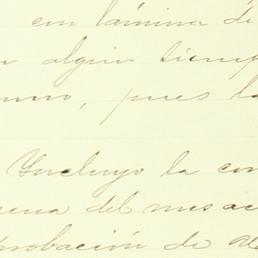 con lámina de
algún tiemp
pues la
Incluyo la con
cena del mes ac
probación de